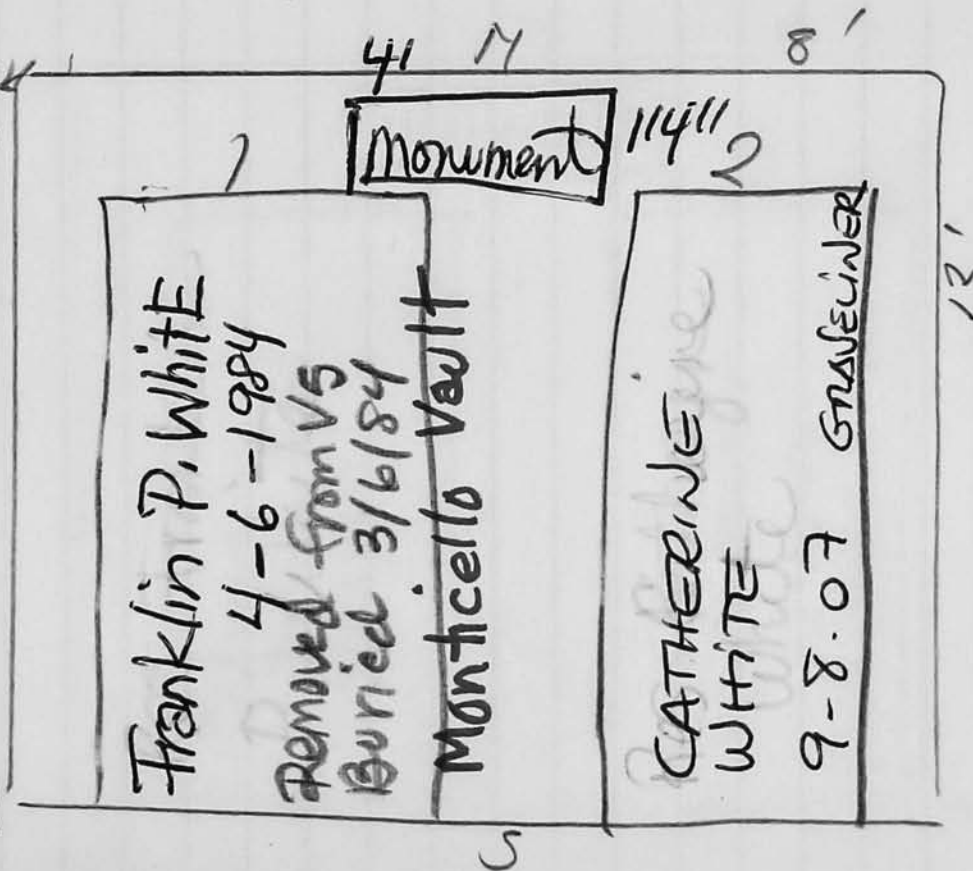 4'
8'
1
Monument
1'4"
2
13'
Franklin P. WhitE
4-6-1984
Removed from V5
Buried 3/6/84
Monticello Vault
CATHERINE
WHITE
9-8-07 GRAVELINER
S